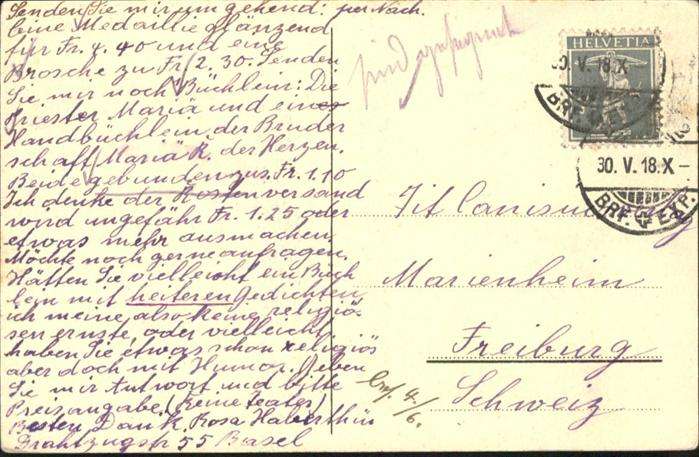 Senden Sie mir umgehend: per Nach.
Eine Medaillie glänzend
für Fr. 4.40 und eine
Brosche zu Fr. 2.30. Senden
Sie mir noch Büchlein: Die
Priester Mariä und eines
Handbüchlein der Bruder
schaft Mariä K. der Herzen.
Beide gebunden zus. Fr. 1.10
Ich denke der Kosten versand
wird ungefähr Fr. 1.25 oder
etwas mehr ausmachen.
Möchte noch gerne anfragen.
Hätten Sie vielleicht ein Büch
lein mit heiteren Gedichten,
ich meine, also keine religiö-
sen ernste, oder vielleicht
haben Sie etwas schon religiös
aber doch mit Humor. Geben
Sie mir Antwort und bitte
Preisangabe. (Keine teater)
Besten Dank. Rosa Haberthür
Drahtzugstr 55 Basel
HELVETIA
30. V. 18. X
BRF. EXP.
30. V. 18. X –
BRF. EXP.
Tit Canisius
Marienheim
Freiburg
Schweiz
4./6.